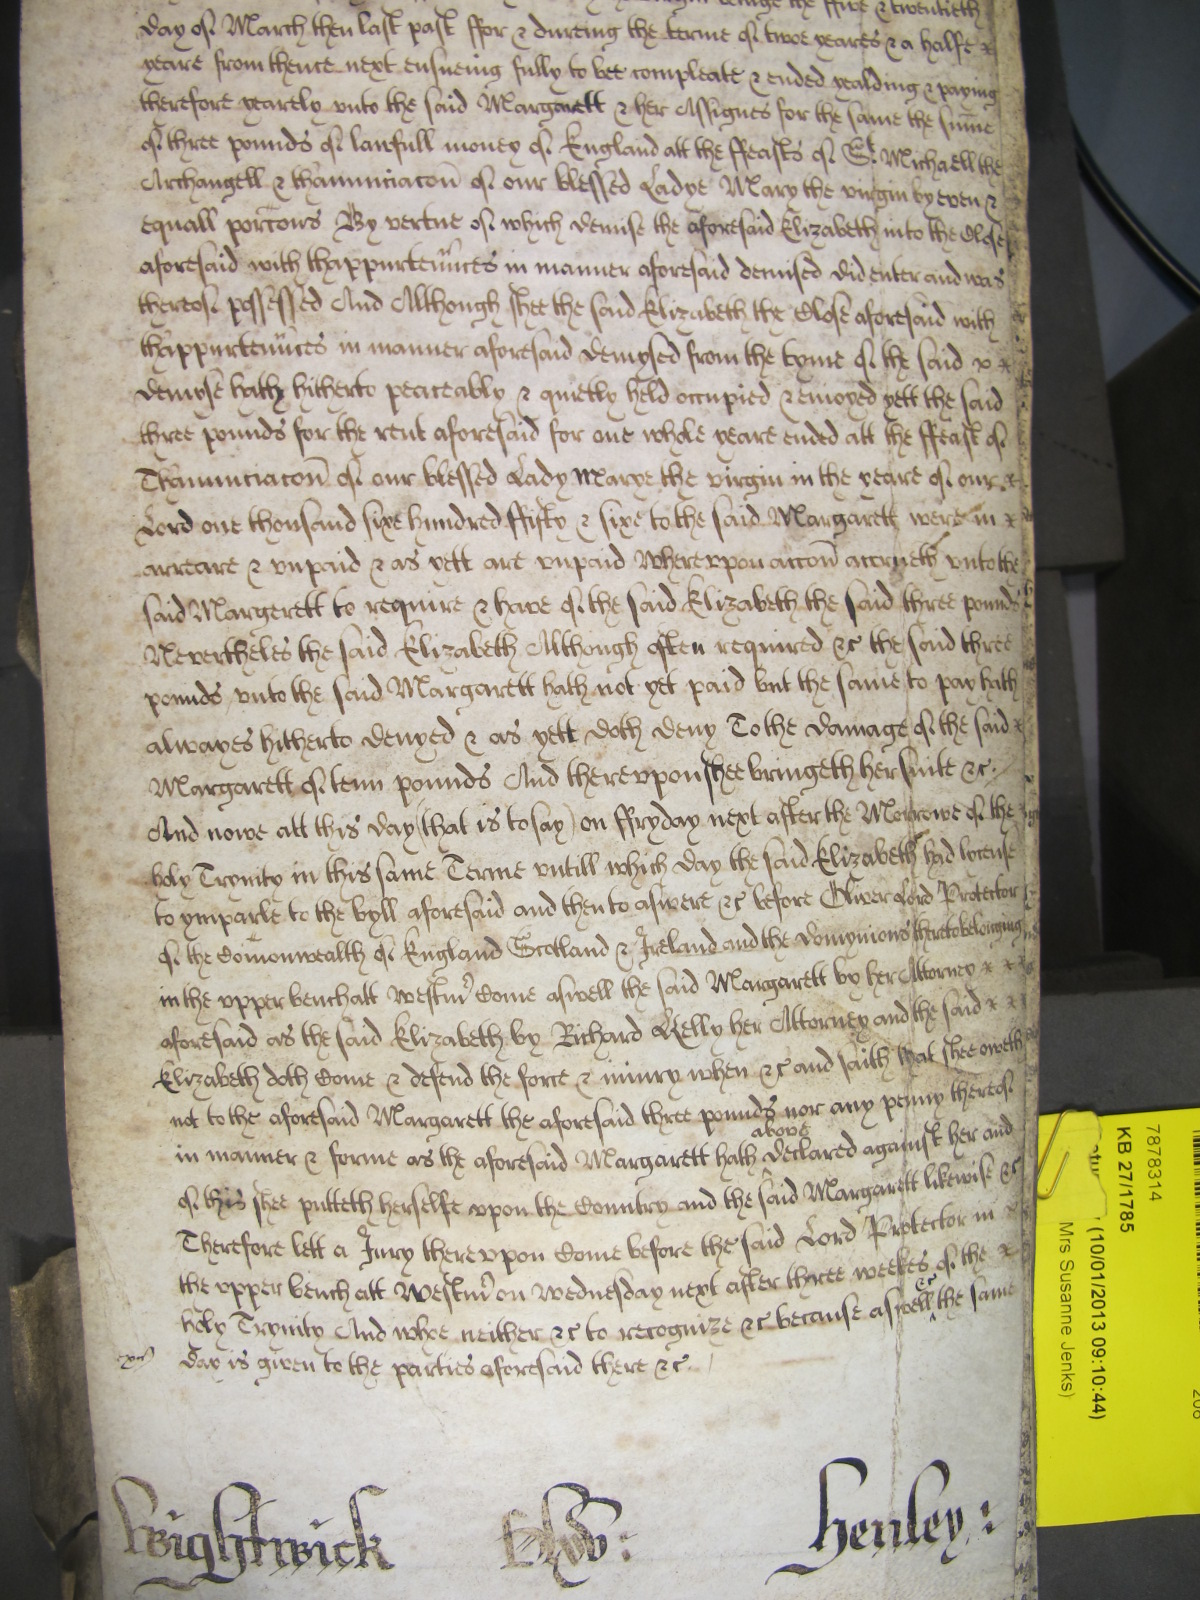 the ffive & twentieth
day of March then last past ffor & dureing the terme of twoe yeares & a halfe
yeare from thence next ensueing fully to bee compleate & ended yealding & paying
therefore yearely unto the said Margarett & her Assignes for the same the sume
of three pounds of lawfull money of England att the ffeasts of St. Michaell the
Archangell & thannunciacon of our blessed Ladye Mary the virgin by even &
equall porcons By vertue of which demise the aforesaid Elizabeth into the Close
aforesaid with thappurtenices in manner aforesaid demised did enter and was
thereof possessed And Although shee the said Elizabeth the Close aforesaid with
thappurtenices in manner aforesaid demysed from the tyme of the said
demyse hath hitherto peaceably & quietly held occupied & enioyed yett the said
three pounds for the rent aforesaid for one whole yeare ended att the ffeast of
Thanunciacon of our blessed Lady Marye the virgin in the yeare of our
Lord one thousand sixe hundred ffifty & sixe to the said Margarett were in
arreare & unpaid & as yett are unpaid Whereupon accon accrueth unto the
said Margerett to require & have of the said Elizabeth the said three pounds
Nevertheles the said Elizabeth Although often required &c the said three
pounds unto the said Margarett hath not yet paid but the same to pay hath
alwayes hitherto denyed & as yett doth deny To the damage of the said
Margarett of tenn pounds And thereupon shee bringeth her suite &c.
And nowe att this day (that is to say) on ffryday next after the Morrowe of the
holy Trynity in this same Terme untill which day the said Elizabeth had lycense
to ymparle to the byll aforesaid and then to aswere &c before Oliver Lord Protector
of the Comonwealth of England Scotland & Ireland and the Domynions thereto belonging
in the upper bench att Westmr Come aswell the said Margarett by her Attorney
aforesaid as the said Elizabeth by Richard Kelly her Attorney and the said
Elizabeth doth Come & defend the force & iniury when &c and saith that shee oweth
not to the aforesaid Margarett the aforesaid three pounds nor any penny thereof
in manner & forme as the aforesaid Margarett hath above declared against her and
of this shee putteth herselfe upon the Country and the said Margarett likewise &c
Therefore lett a Jury thereupon Come before the said Lord Protector in
the upper bench att Westmr on Wednesday next after three weekes of the
holy Trynity And whoe neither &c to recognize &c because aswell &c the same
day is given to the parties aforesaid there &c.
Wightwick
Henley:
7878314
KB 27/1785
(10/01/2013 09:10:44)
Mrs Susanne Jenks)